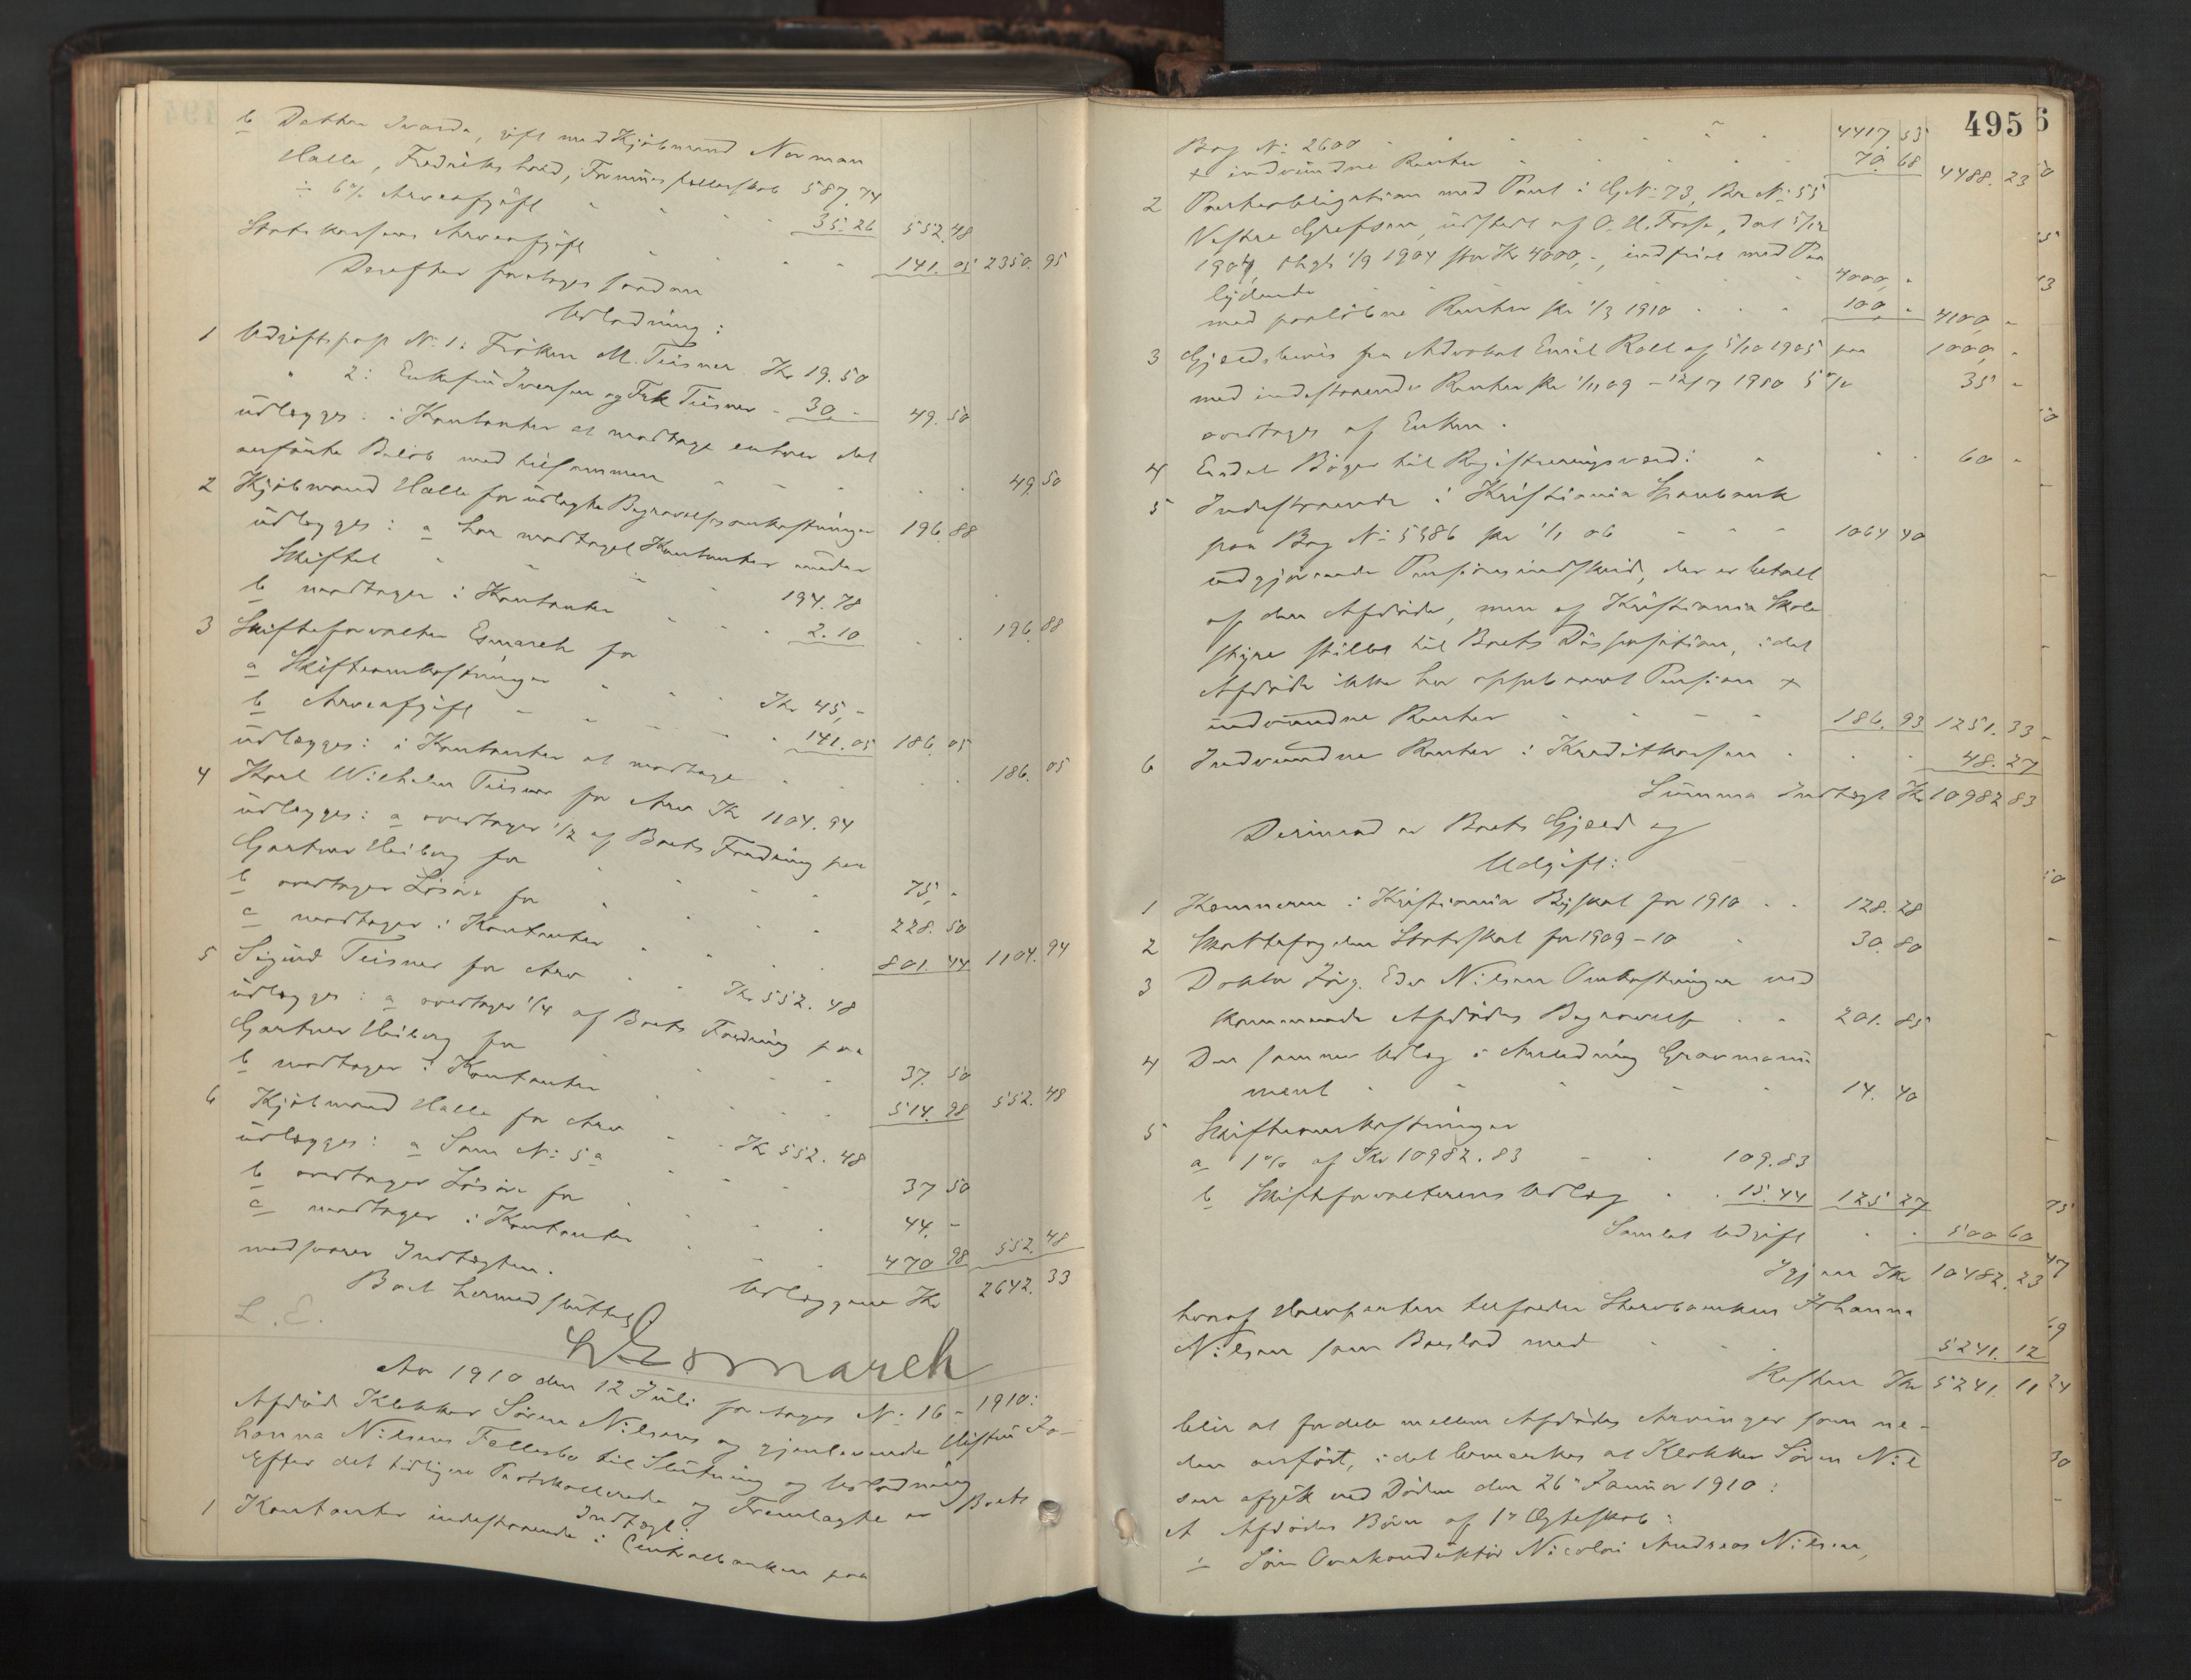 b Datter Svanda, gift med Kjöbmand Norman
Halle, Fredrikshald, Formuesfællesskab 587.74
÷ 6% Arveafgift 35.26 552.48
Statskassens Arveafgift 141.05 2350.95
Derefter foretoges saadan
Udlodning:
1 Udgiftspost No 1: Fröken M. Tiisner Kr 19.50
" 2: Enkefru Iversen og Frk Tiisner - 30,- 49.50
udlægges: i Kontanter at modtage enhver det
anförte Belöb med tilsammen 49.50
2 Kjöbmand Halle for udlagte Begravelsesomkostninger 196.88
udlægges: a har modtaget Kontanter under
Skiftet 194.78
b modtager i Kontanter 2.10 196.88
3 Skifteforvalter Esmarch for
a Skifteomkostninger Kr 45,-
b Arveafgift 141.05 186.05
udlægges: i Kontanter at modtage 186.05
4 Karl Wilhelm Tiisner for Arv Kr 1104.94
udlægges: a overtager 1/2 af Boets Fordring paa
Gartner Heiberg for 75,-
b overtager Lösöre for 228.50
c modtager i Kontanter 801.44 1104.94
5 Sigurd Tiisner for Arv Kr 552.48
udlægges: a overtager 1/4 af Boets Fordring paa
Gartner Heiberg for 37.50
b modtager i Kontanter 514.98 552.48
6 Kjöbmand Halle for Arv Kr 552.48
udlægges: a Som No 5a 37 50
b overtager Lösöre for 44.-
c modtager i Kontanter 470 98 552.48
Udlæggene Kr 2642.33
modsvarer Indtægten.
Boet hermed sluttet
L. E.
L Esmarch
Aar 1910 den 12 Juli foretoges No 16 - 1910:
Afdöde Klokker Sören Nilsens og gjenlevende Hustru Jo-
hanna Nilsens Fællesbo til Slutning og Udlodning
Efter det tidligere Protokollerede og Fremlagte er Boets
Indtægt:
1 Kontanter indestaaende i Centralbanken paa
495
Bog No 2600 4417 55
+ indvundne Renter 70.68 4488.23
2 Panteobligation med Pant i G.No 73, Br.No 55
Vestre Grefsen, udstedt af O. H. Fosse, dat 5/12
1904, thgl 1/9 1904 stor Kr 4000,-, indfriet med Paa
lydende 4000,-
med paaløbne Renter pr 1/3 1910 100,- 4100,-
3 Gjældsbevis fra Advokat Emil Roll af 5/10 1905 paa 1000,-
med indestaaende Renter pr 1/11 09 - 12/7 1910 5% 35 -
overtages af Enken.
4 Endel Böger til Registreringsværd: 60 -
5 Indestaaende i Kristiania Sparebank
paa Bog No 5586 pr 1/1 06 1064 40
udgjörende Pensionsindskud, der er betalt
af den Afdöde, men af Kristiania Skole
styre stillet til Boets Disposition, idet
Afdöde ikke har oppebaaret Pension +
indvundne Renter 186.93 1251.33
6 Indvundne Renter i Kreditkassen 48.27
Summa Indtægt Kr 10982 83
Derimod er Boets Gjæld og
Udgift:
1 Kæmneren i Kristiania Byskat for 1910 128.28
2 Skattefogden Statsskat for 1909-10 30.80
3 Doktor Jörg. Eder Nilsen Omkostninger ved
kommende Afdödes Begravelse 201.85
4 Den samme Udlæg i Anledning Gravmonu
ment 14.40
5 Skifteomkostninger
a 1% af Kr 10982.83 109.83
b Skifteforvalterens Udlæg 15.44 125 27
Samlet Udgift 500 60
Igjen Kr 10482.23
hvoraf Halvparten tilfalder Stervboenken Johanna
Nilsen som Boeslod med 5241.12
Resten Kr 5241.11
blir at fordele mellem Afdödes Arvinger som ne-
den anfört, idet bemerkes at Klokker Sören Nil
sen afgik ved Döden den 26 Januar 1910:
A Afdödes Börn af 1ste Ægteskab:
1 Sön Overkonduktör Nicolai Andreas Nilsen,